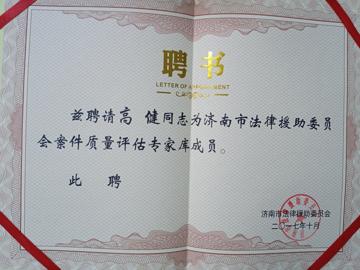 聘书
LETTER OF APPOINTMENT
兹聘请高 健同志为济南市法律援助委员
会案件质量评估专家库成员。
此 聘
济南市法律援助委员会
二〇一七年十月